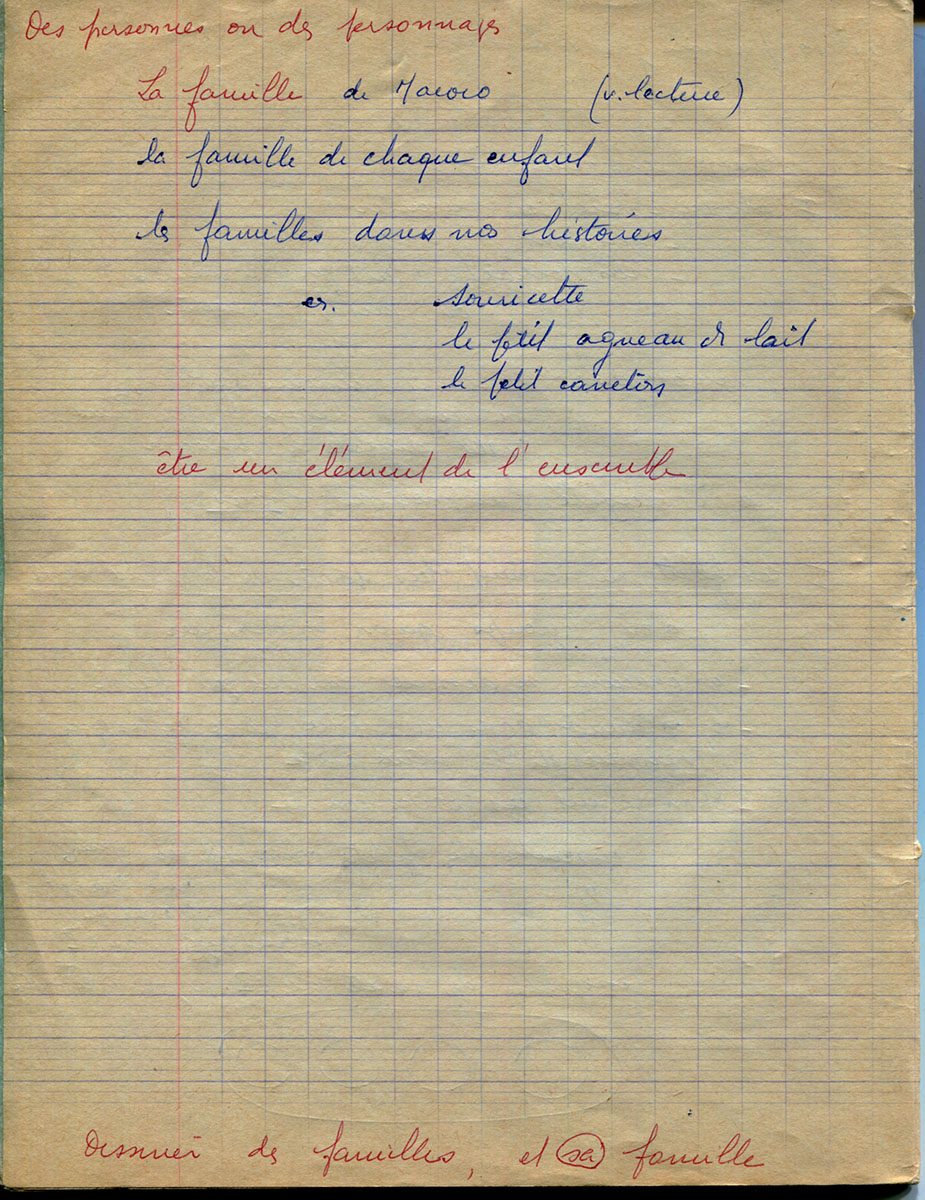 Des personnes ou des personnages
La famille de Macoco (v. lecture)
la famille de chaque enfant
les familles dans nos histoires
ex. souricette
le petit agneau de lait
le petit caneton
être un élément de l'ensemble
Dessiner des familles, et sa famille